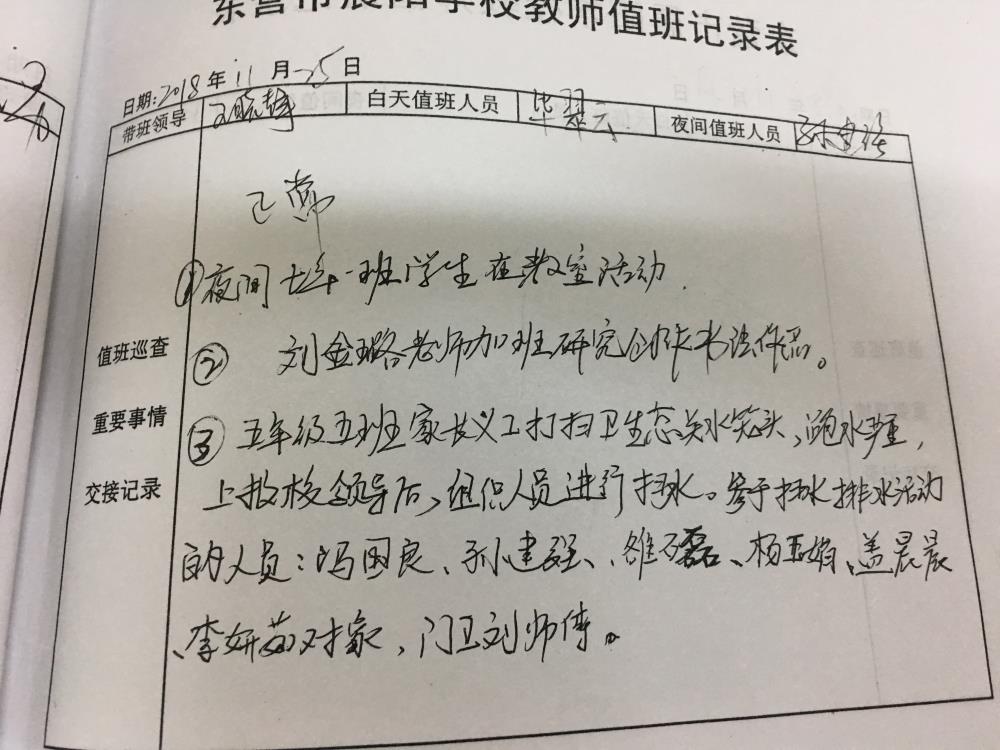 东营市晨阳学校教师值班记录表
日期:2018年11月25日
带班领导 王晓静 白天值班人员 毕翠云 夜间值班人员
值班巡查
重要事情
交接记录
①夜间七年一班学生在教室活动.
② 刘金璐老师加班研究创作书法作品。
③五年级五班家长义工打扫卫生忘关水笼头,跑水严重,
上报校领导后,组织人员进行扫水。参于扫水排水活动
的人员:冯国良、孙建强、雒磊、杨玉娟、盖晨晨
、李妍茹对象,门卫刘师傅。